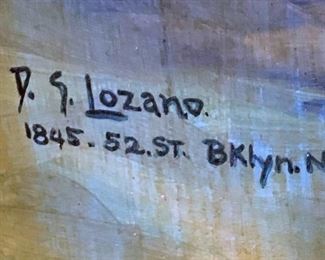 D. G. Lozano.
1845 - 52. ST. BKlyn. N